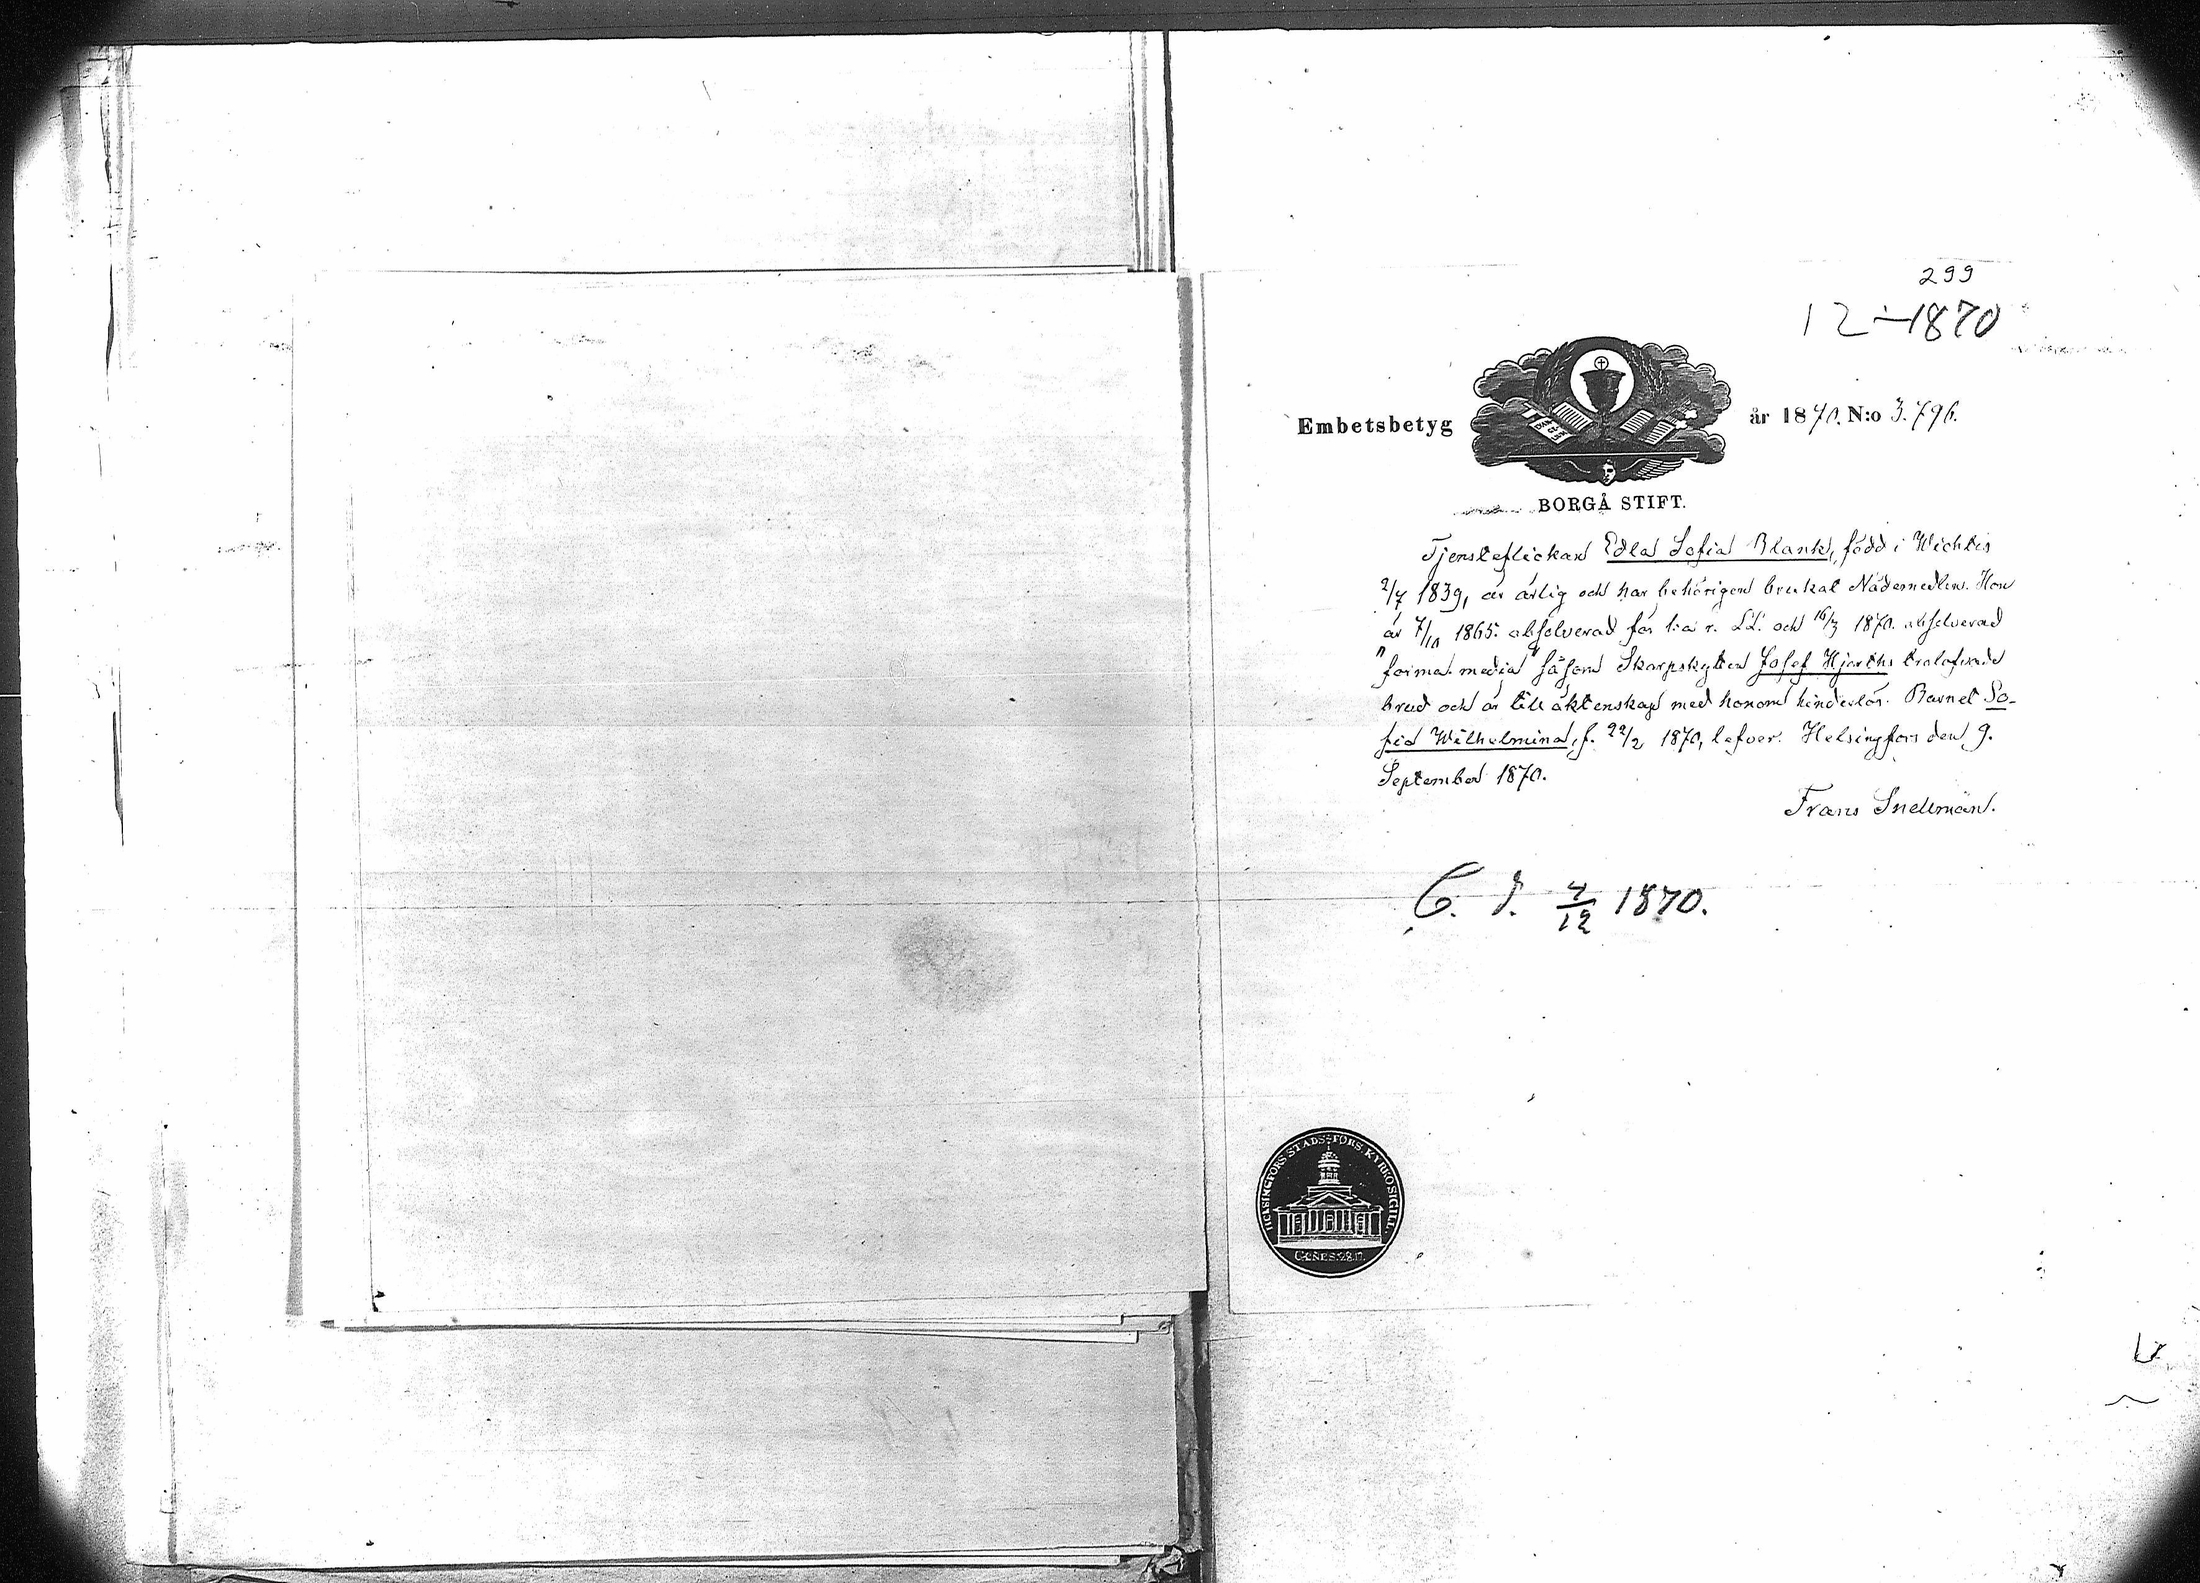 299
12-1870
Embetsbetyg år 1870. N:o 3.796.
BORGÅ STIFT.
Tjensteflickan Edla Sofia Blank, född i Wichtis
2/7 1839, är ärlig och har behörigen brukat Nådemedlen. Hon
är 7/10 1865 absolverad för 1:a r. LL. och 16/3 1870 absolverad
"forma media" såsom Skarpskytten Josef Hjorths trolofvade
brud och är till äktenskap med honom hinderlös. Barnet So-
fia Wilhelmina, f. 22/2 1870, lefver. Helsingfors den 9.
September 1870.
Frans Snellman.
C. I. 4/12 1870.
HELSINGFORS STADS FÖRS. KYRKOSIGILL.
GENES. 28:17.